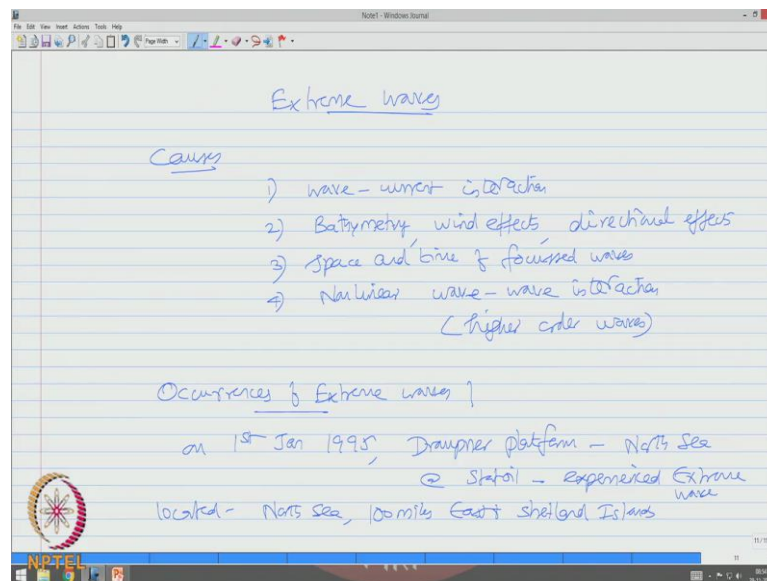 Note1 - Windows Journal
File Edit View Insert Actions Tools Help
Page Width
Extreme waves
Causes
1) wave - current interaction
2) Bathymetry, wind effects, directional effects
3) space and time of focussed waves
4) Nonlinear wave - wave interaction
(higher order waves)
Occurrences of Extreme waves
on 1st Jan 1995, Draupner platform - North Sea
@ Statoil - experienced Extreme
wave
located - North Sea, 100 miles East of Shetland Islands
NPTEL